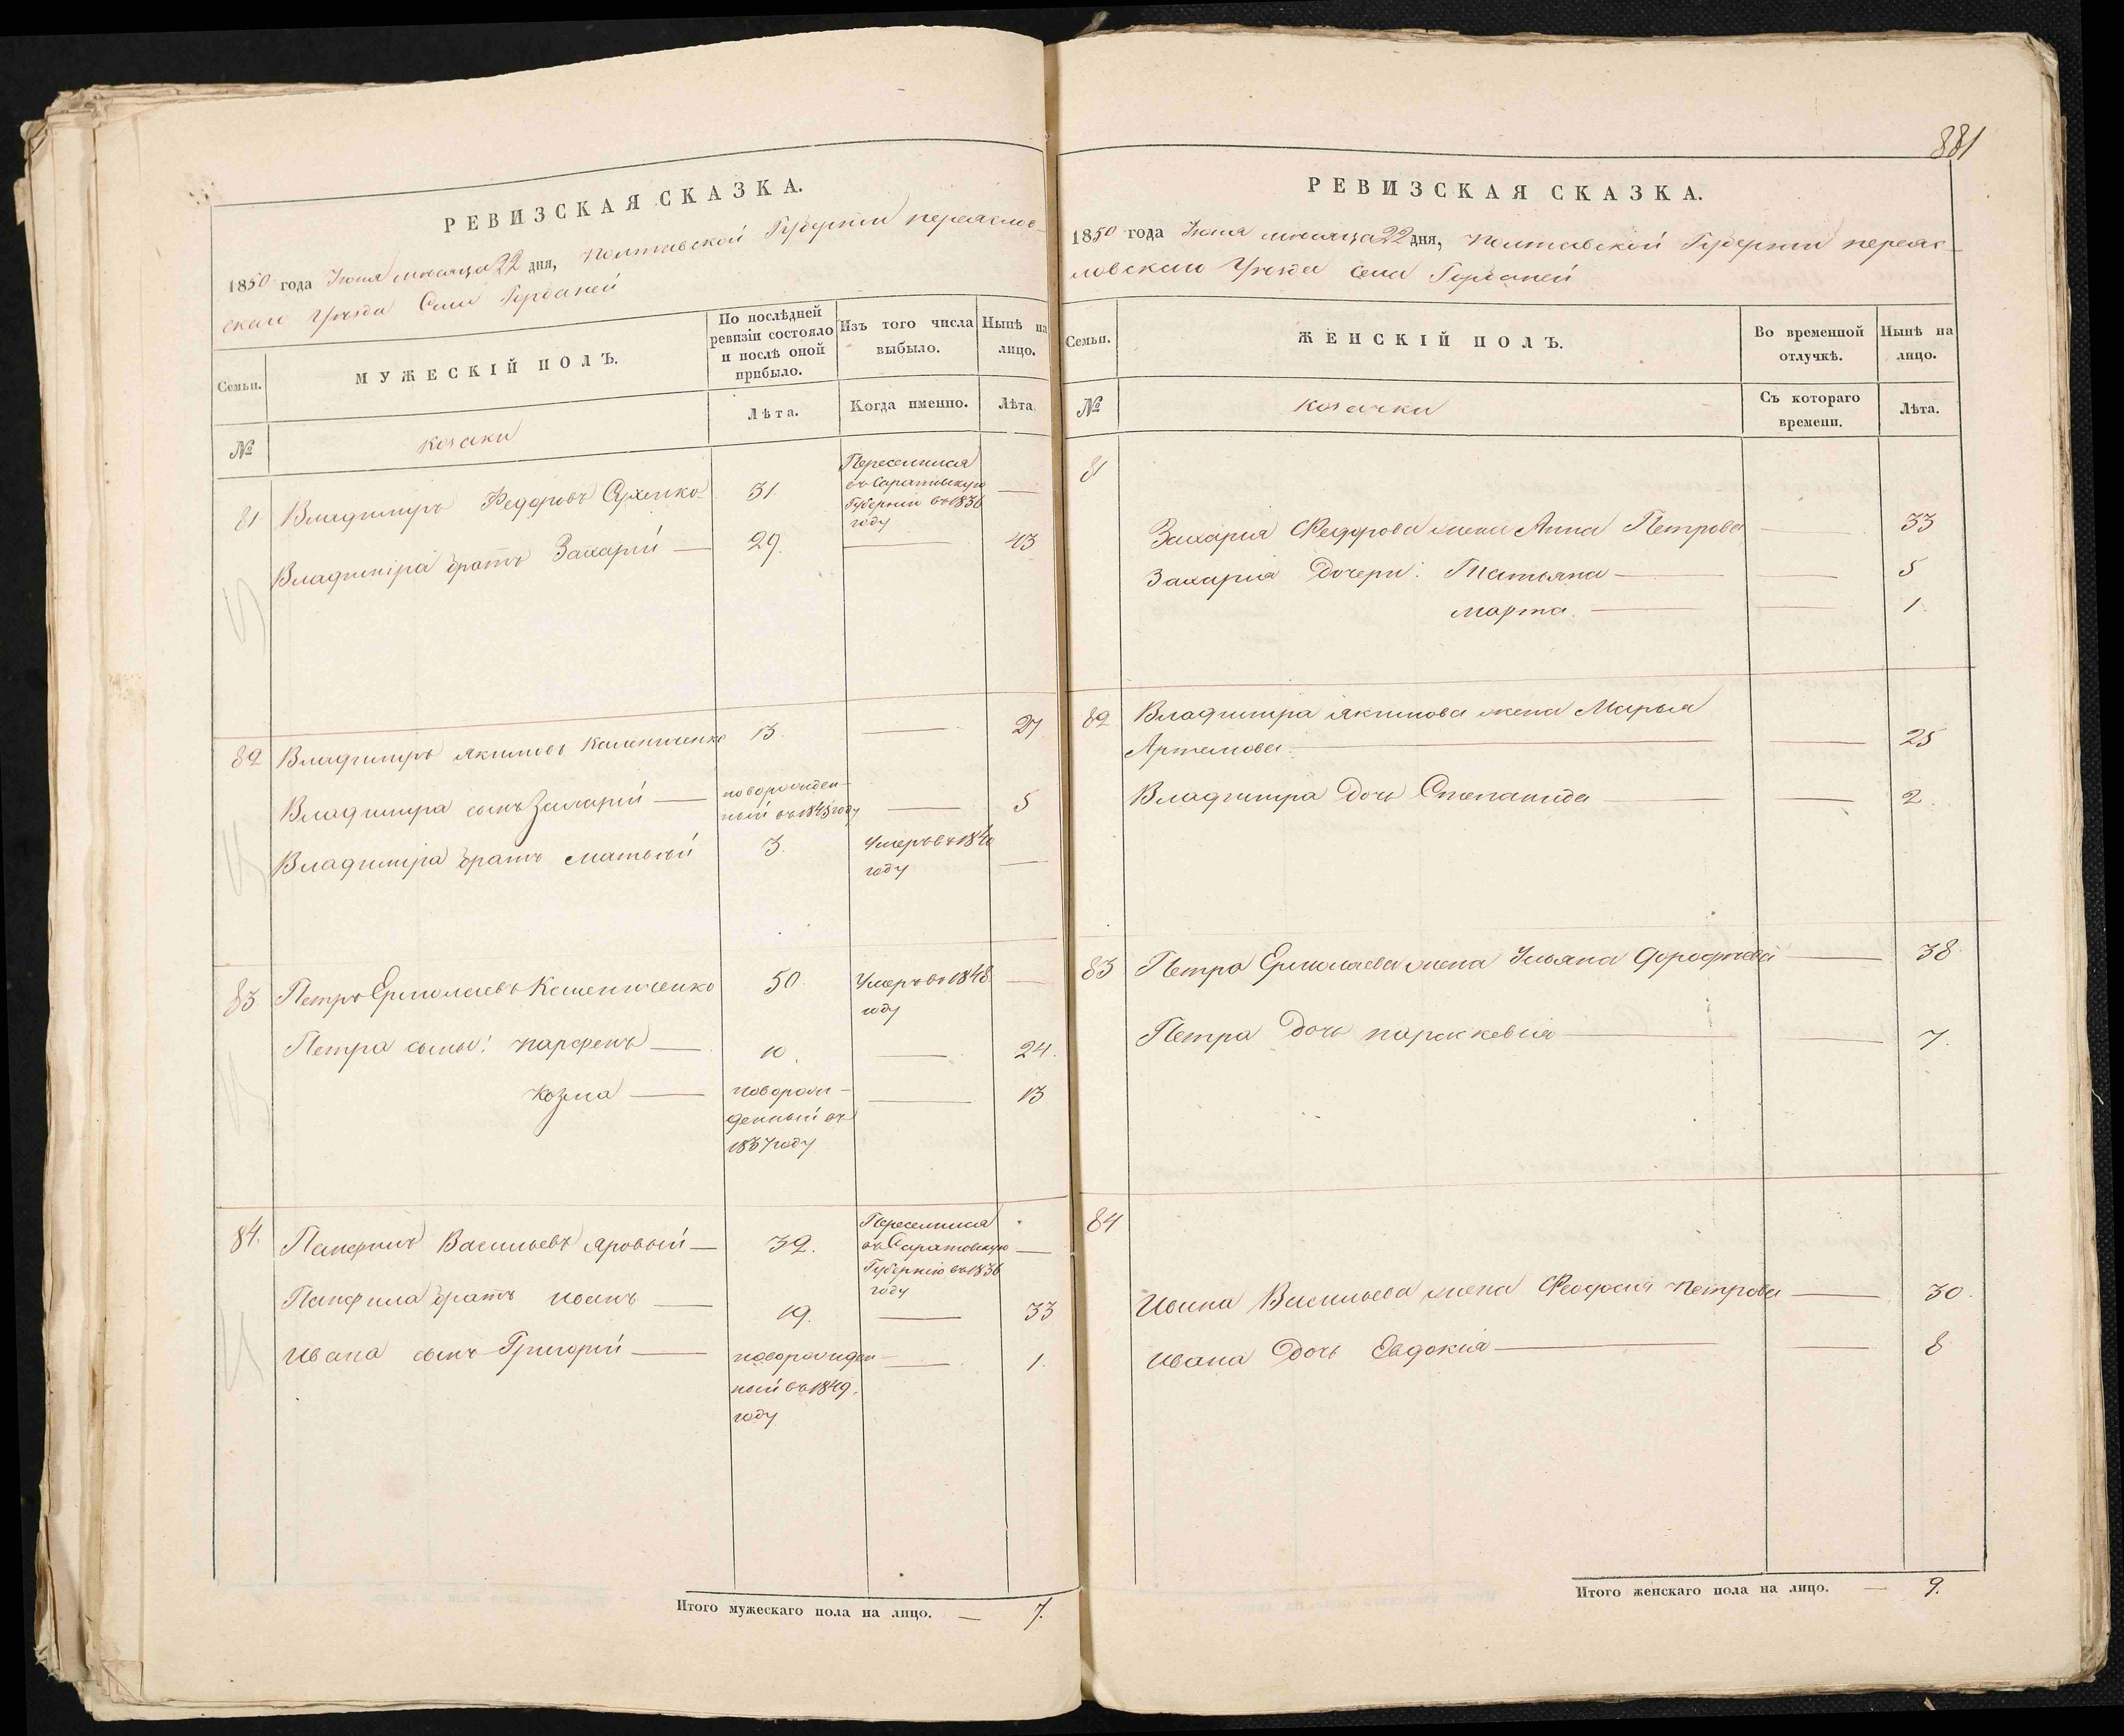 РЕВИЗСКАЯ СКАЗКА.
1850 года Июня месяца 22 дня, Полтавской Губернии переяслов-
скаго Уезда Села Горбаней
Семьи.
МУЖЕСКІЙ ПОЛЪ.
По послѣдней
ревизіи состояло
и послѣ оной
прибыло.
Изъ того числа
выбыло.
Нынѣ на
лицо.
№
козаки
Лѣта.
Когда именно.
Лѣта.
81 Владимиръ Федоровъ Сухенко 31
Переселился
въ Саратовскую
Губернію въ 1836
году
Владиміра братъ Захарій — 29. — 43
82 Владимиръ Якимовъ Калениченко 13. — 27
Владимира сынъ Захарій —
новорожден-
ный въ 1845 году
— 5
Владиміра братъ Матвѣй 3.
Умеръ въ 1840
году
83 Петръ Ермолаевъ Калениченко 50.
Умеръ въ 1848
году
Петра сыны: парфенъ — 10. — 24.
Козма —
Новорож-
денный въ
1837 году
— 13
84. Панфилъ Васильевъ Яровый — 32.
Переселился
въ Саратовскую
Губернію въ 1836
году
Панфила братъ Иванъ — 19. — 33
Ивана сынъ Григорій —
новорожден-
ный въ 1849.
году
— 1.
Итого мужескаго пола на лицо. — 7.
881
РЕВИЗСКАЯ СКАЗКА.
1850 года Июня месяца 22 дня, Полтавской Губернии переяс-
ловскаго Уезда Села Горбаней
Семьи.
ЖЕНСКІЙ ПОЛЪ.
Во временной
отлучкѣ.
Нынѣ на
лицо.
№
козачки
Съ котораго
времени.
Лѣта.
81
Захарія Федорова жена Анна Петрова — 33
Захарія Дочери: Татьяна — — 5
Марта. — — 1.
82 Владимира Якимова жена Марья
Артемова. — — 25
Владимира Дочь Степанида — — 2.
83 Петра Ермолаева жена Ульяна Дорофѣева — 38.
Петра Дочь параскевія — — 7.
84
Ивана Васильева жена Феодосія Петрова — 30.
Ивана Дочь Евдокія — — 8
Итого женскаго пола на лицо. — 9.